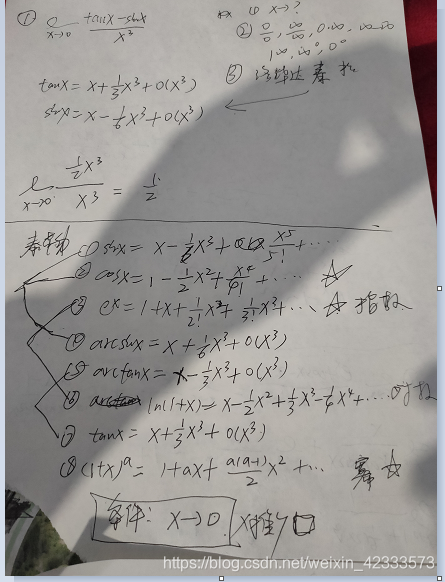 ① lim x→0 (tanx-sinx)/x³
① x→?
② 0/0, ∞/∞, 0·∞, ∞-∞
1^∞, ∞⁰, 0⁰
tanx = x+1/3x³+0(x³)
③ 洛必达 泰
sinx = x-1/6x³+0(x³)
lim x→0 (1/2x³)/x³ = 1/2
泰勒
① sinx = x-1/6x³+x⁵/5!+····
② cosx = 1-1/2x²+x⁴/4!+···· ☆
③ eˣ = 1+x+1/2!x²+1/3!x³+··· ☆ 指数
④ arcsinx = x+1/6x³+0(x³)
⑤ arctanx = x-1/3x³+0(x³)
⑥ ln(1+x) = x-1/2x²+1/3x³-1/4x⁴+····对数
⑦ tanx = x+1/3x³+0(x³)
⑧ (1+x)ᵃ = 1+ax+a(a-1)/2x²+··· 幂 ☆
条件: x→0. x推广□
https://blog.csdn.net/weixin_42333573